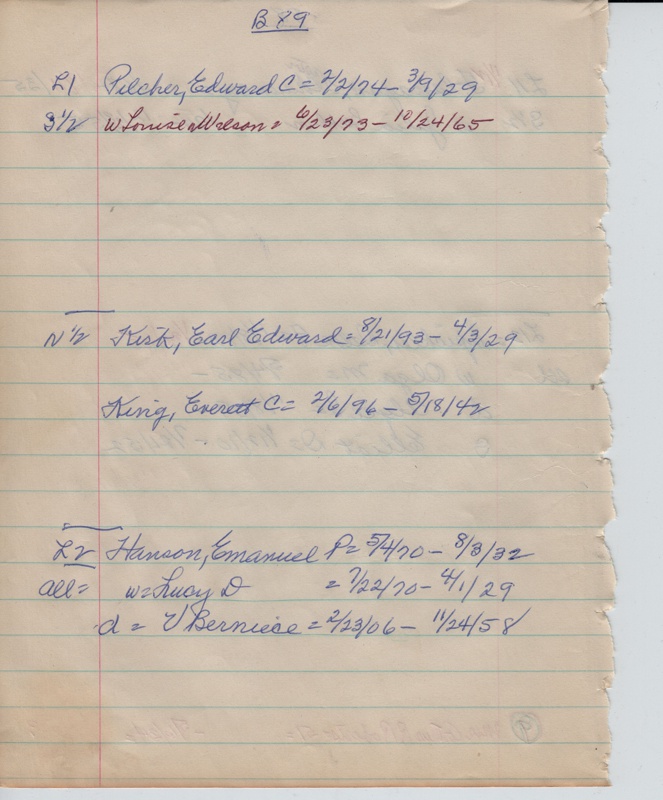 B 89
L1 Pilcher, Edward C = 2/2/74 - 3/9/29
S 1/2 w Louise Wilson = 6/23/73 - 10/24/65
N 1/2 Kirk, Earl Edward = 8/21/93 - 4/3/29
King, Everett C = 2/6/96 - 5/18/42
L2 Hanson, Emanuel P = 5/4/70 - 8/3/32
All = w = Lucy D = 7/22/70 - 4/1/29
d = V Berniece = 2/23/06 - 11/24/58